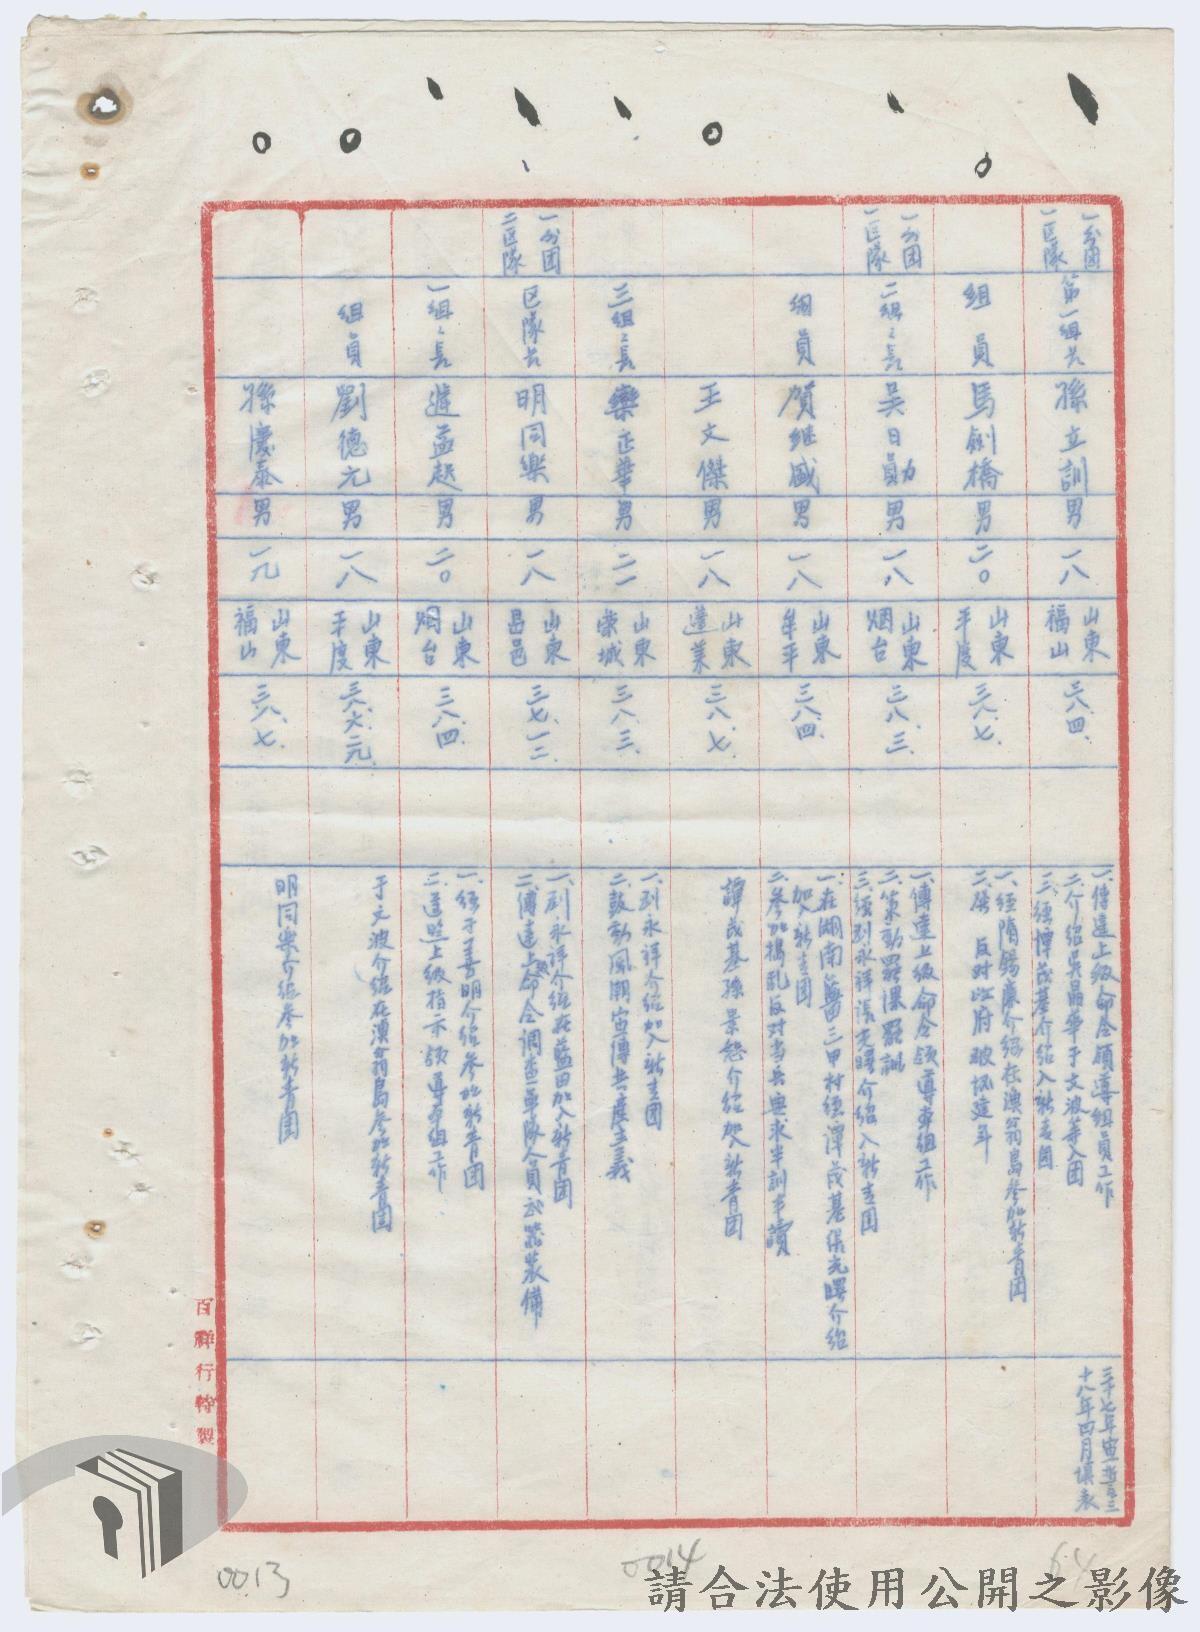 一分团
一区隊
第一組長
孫立訓
男
一八
山東
福山
三八.四.
一.傳達上級命令領導組員工作
二.介紹吳晶華于文波等入团
三.經譚茂基介紹入新青团
三十七年宣誓三
十八年四月填表
組員
馬劍橋
男
二〇
山東
平度
三八.七.
一.經隋錫廉介紹在澳翁島参加新青团
二.反对政府破坏建軍
一分团
一区隊
二組々長
吳日勛
男
一八
山東
烟台
三八.三.
一.傳達上級命令領導本組工作
二.策動罷課罷訓
三.經刘永祥張光曙介紹入新青团
組員
賀继盛
男
一八
山東
牟平
三八.四.
一.在湖南藍田三甲村經譚茂基張光曙介紹
加入新青团
二.参加搗乱反对当兵要求半訓半讀
王文傑
男
一八
山東
蓬萊
三八.七.
譚茂基孫景 介紹加入新青团
三組々長
欒正華
男
二一
山東
三八.三.
一.刘永祥介紹加入新青团
二.鼓動風潮宣傳共產主義
一分团
二区隊
区隊長
明同樂
男
一八
山東
昌邑
三七.一二.
一.刘永祥介紹在藍田加入新青团
二.傳達上級命令調查軍隊人員武器裝備
一組々長
遲益起
男
二〇
山東
烟台
三八.四.
一.經于善明介紹参加新青团
二.遵照上級指示領導本組工作
組員
劉德元
男
一八
山東
平度
三八.六.元.
于文波介紹在澳翁島参加新青团
孫慶泰
男
一九
山東
福山
三八.七.
明同樂介紹参加新青团
百祥行特製
0013
0014
64
請合法使用公開之影像